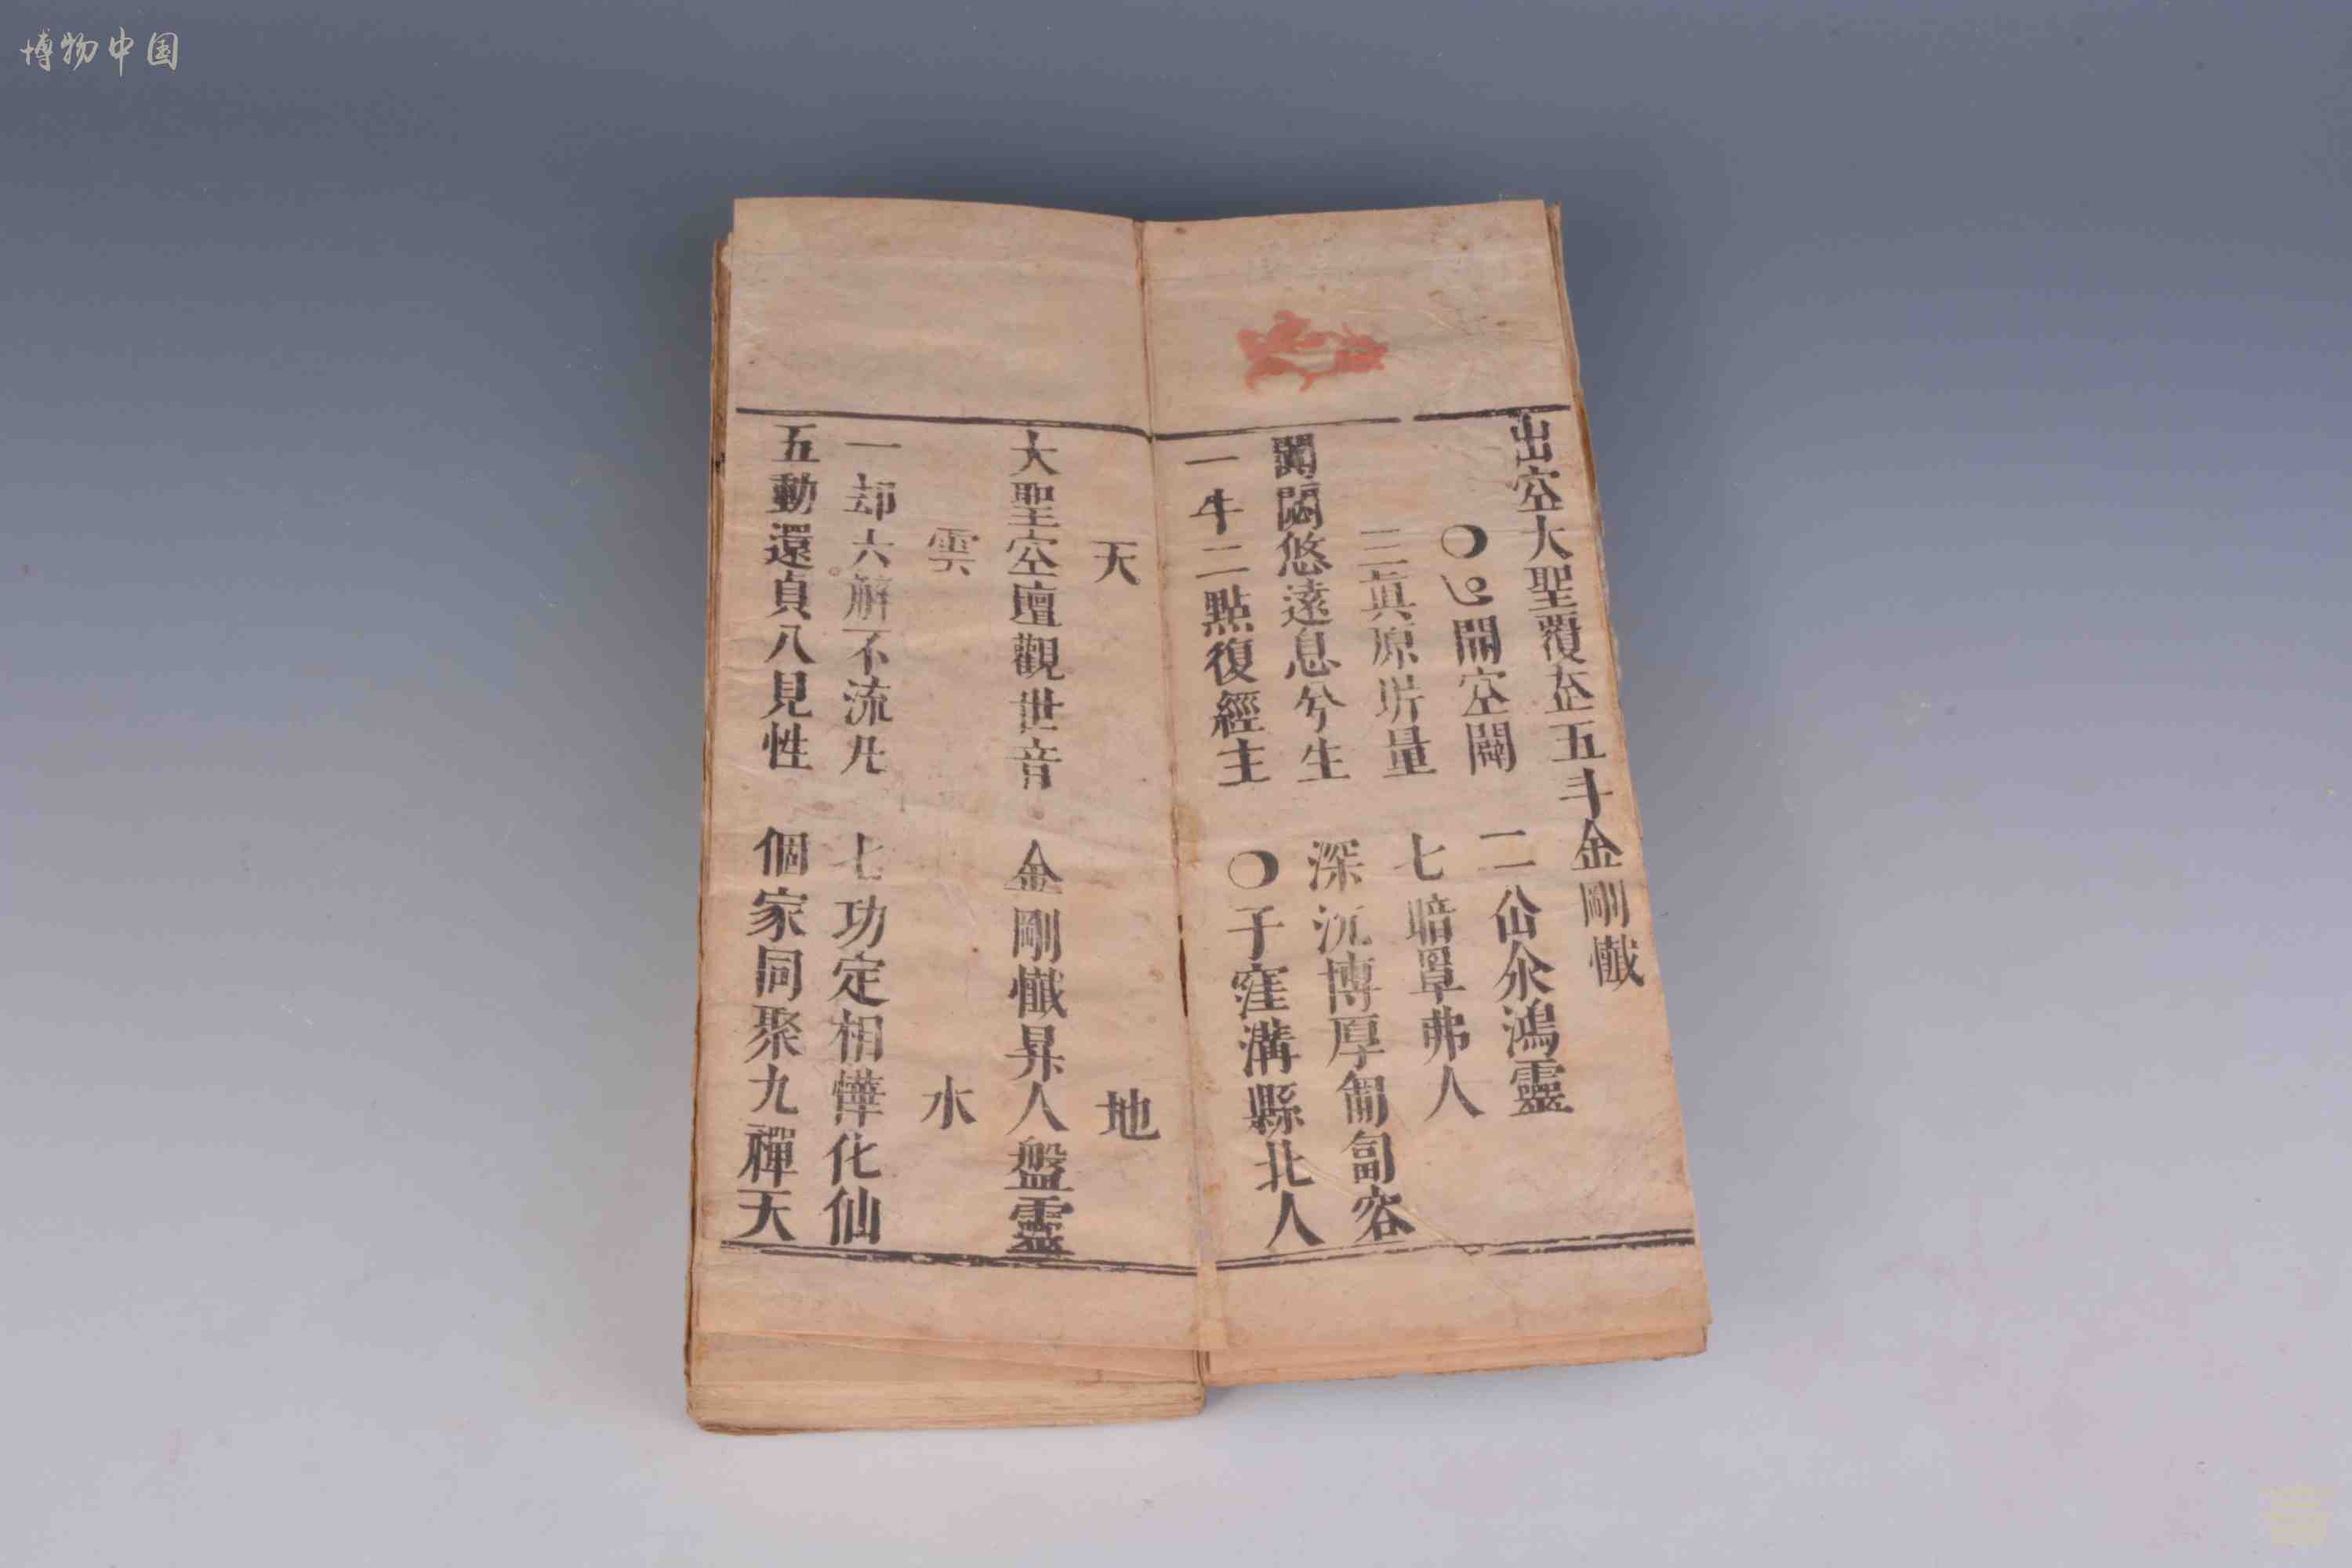 博物中国
出空大聖覆在五斗金剛懺
開空闢 二 鴻靈
三眞原 量 七暗罩弗人
悠遠息兮生 深沉博厚 容
一牛二點復經主 〇子窪溝縣北人
天 地
大聖空 觀世音 金剛懺昇人盤靈
雲 水
一却六解不流 七功定相 化仙
五動還貞八見性 個家同聚九禪天